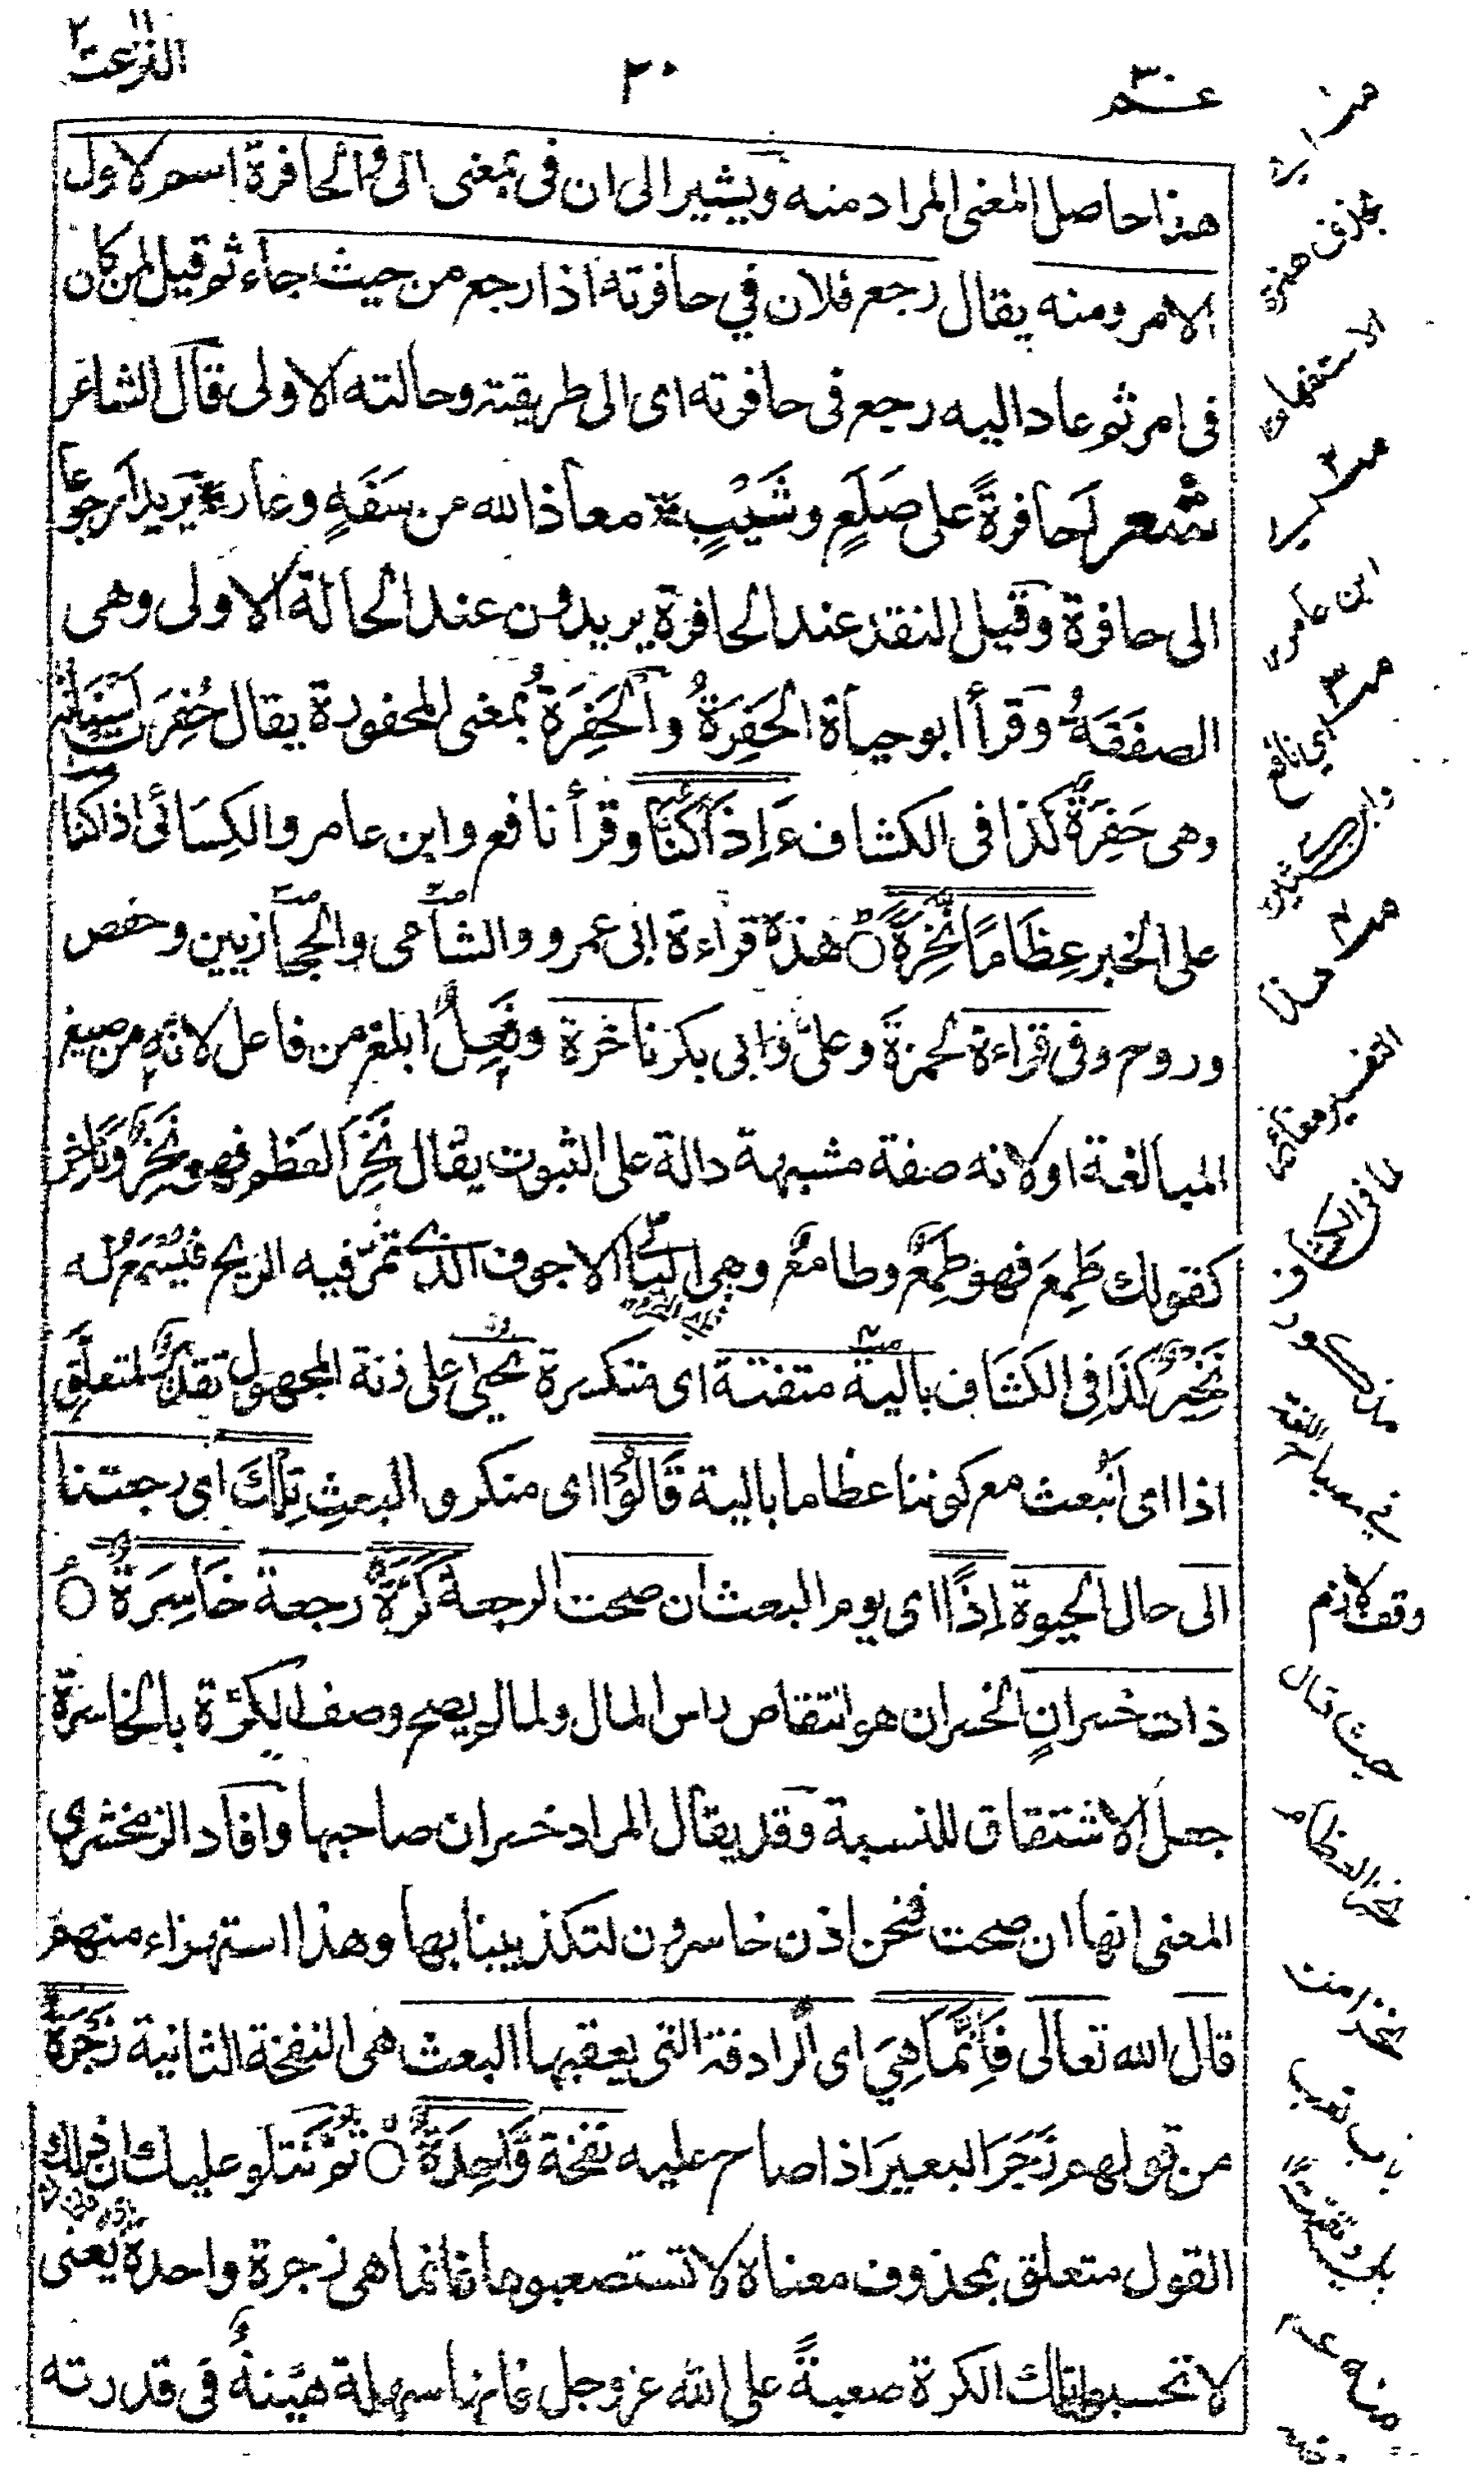 عم ٣٠
٢٠
النٰزعٰت
هذا حاصل المعنى المراد منه ويشير الى ان فى بمعنى الى والحافرة اسم لاول
الامر ومنه يقال رجع فلان في حافرته اذا رجع من حيث جاء ثم قيل لمن كان
فى امر ثم عاد اليه رجع فى حافرته اى الى طريقته وحالته الاولى قال الشاعر
شعر اَحافرةً على صَلَعٍ وشَيْبٍ * معاذ الله من سَفَهٍ وعار * يريد أرجوعا
الى حافرة وقيل النقد عند الحافرة يريدون عند الحالة الاولى وهى
الصفقة وقرأ ابو حياة الحَفِرَةُ والحَفِرَةُ بمعنى المحفورة يقال حُفِرَت اسنانه
وهى حَفِرَةٌ كذا فى الكشاف ءَاِذَا كُنَّا وقرأ نافع وابن عامر والكِسَائى اذا كنا
على الخبر عِظَامًا نَّخِرَةً هذه قراءة ابى عمرو والشامى والحجازيين وحفص
وروح وفى قراءة لحمزة وعلى وابى بكر ناخرة وفَعِلٌ ابلغ من فاعل لانه من صيغ
المبالغة او لانه صفة مشبهة دالة على الثبوت يقال نَخِرَ العظم فهو نَخِرٌ وناخر
كقولك طَمِعَ فهو طَمِعٌ وطامعٌ وهى البالى الاجوف الذى تمر فيه الريح فيُسْمَعُ له
نَخِيرٌ كذا فى الكشاف بالية متفتتة اى متكسرة نحيى على زنة المجهول تقدير لمتعلَّق
اذا اى انُبعث مع كوننا عظاما بالية قَالُوْا اى منكرو البعثِ تِلْكَ اى رجعتنا
الى حال الحيوة اِذًا اى يوم البعث ان صحت الرجعة كَرَّةٌ رجعة خَاسِرَةٌ
ذات خسرانٍ الخسران هو انتقاص راس المال ولما لم يصح وصف الكرّة بالخاسرة
جعل الاشتقاق للنسبة وقد يقال المراد خسران صاحبها وافاد الزمخشرى
المعنى انها ان صحت فنحن اذن خاسرون لتكذيبنا بها وهذا استهزاء منهم
قال الله تعالى فَاِنَّمَا هِيَ اى الرادفة التى يعقبها البعث هى النفخة الثانية زَجْرَةٌ
من قولهم زَجَرَ البعيرَ اذا صاح عليه نفخة وَّاحِدَةٌ ثم نتلو عليك ان ذلك
القول متعلق بمحذوف معناه لا تستصعبوها فانما هى زجرة واحدة يعنى
لا تحسبوا تلك الكرة صعبةً على الله عزوجل فانها سهلة هيّنة فى قدرته
بخلاف همزة
الاستفهام
ابن عامر
اى نافع
التفسير معناه
لما فى الكشاف
مذكور
وقف لازم
حيث قال
نخر العظام